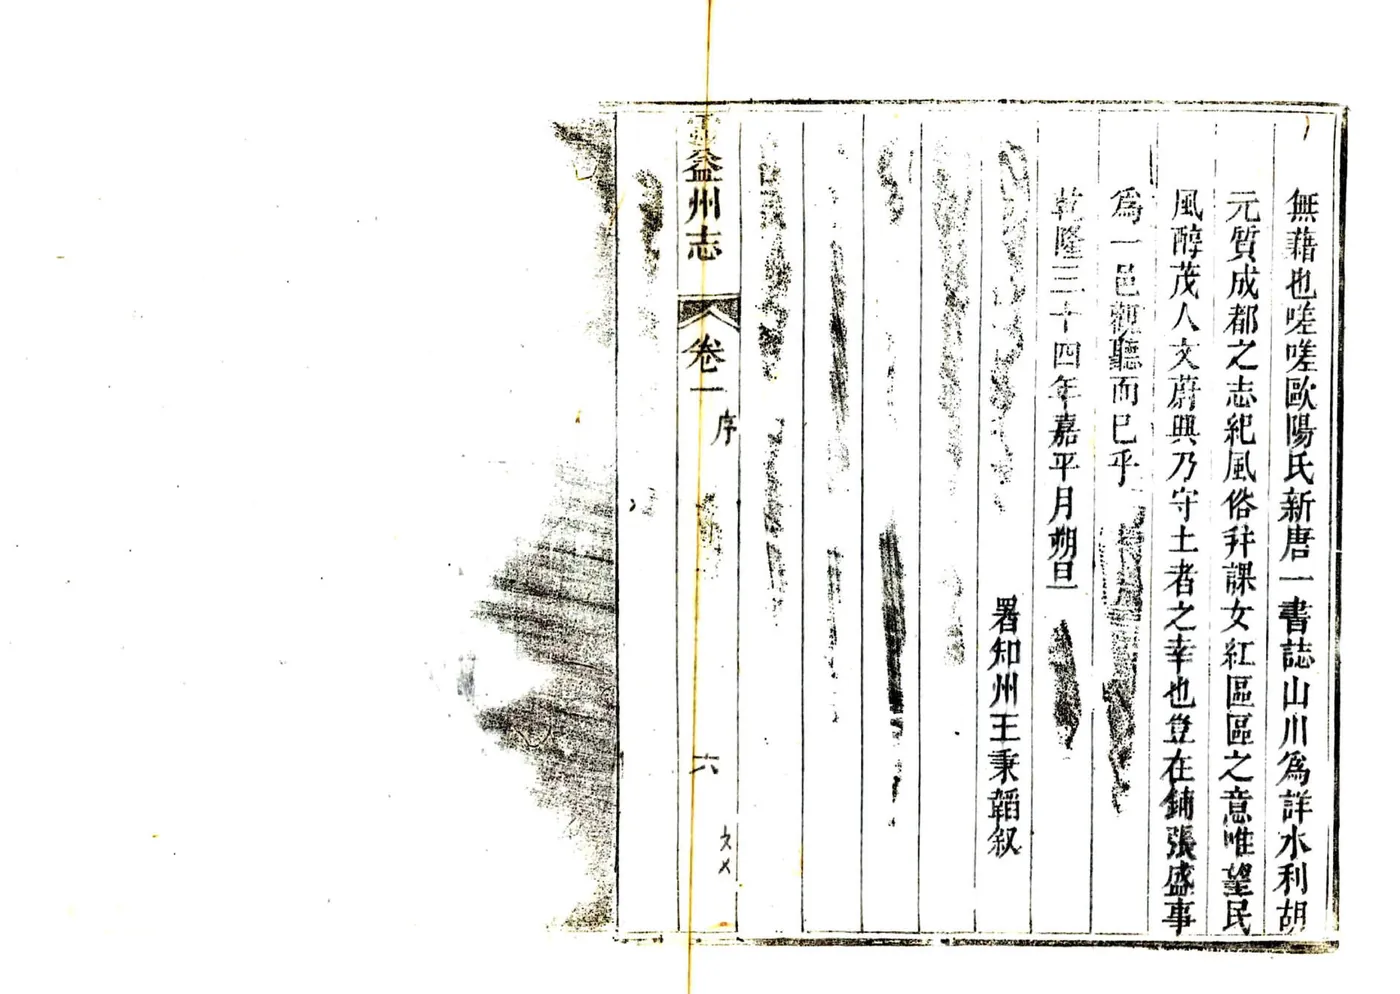 無藉也嗟嗟歐陽氏新唐一書誌山川為詳水利胡
元質成都之志紀風俗幷課女紅區區之意唯望民
風醇茂人文蔚興乃守土者之幸也豈在鋪張盛事
為一邑觀聽而已乎
乾隆三十四年嘉平月朔旦
署知州王秉韜叙
霑益州志
卷一
序
六